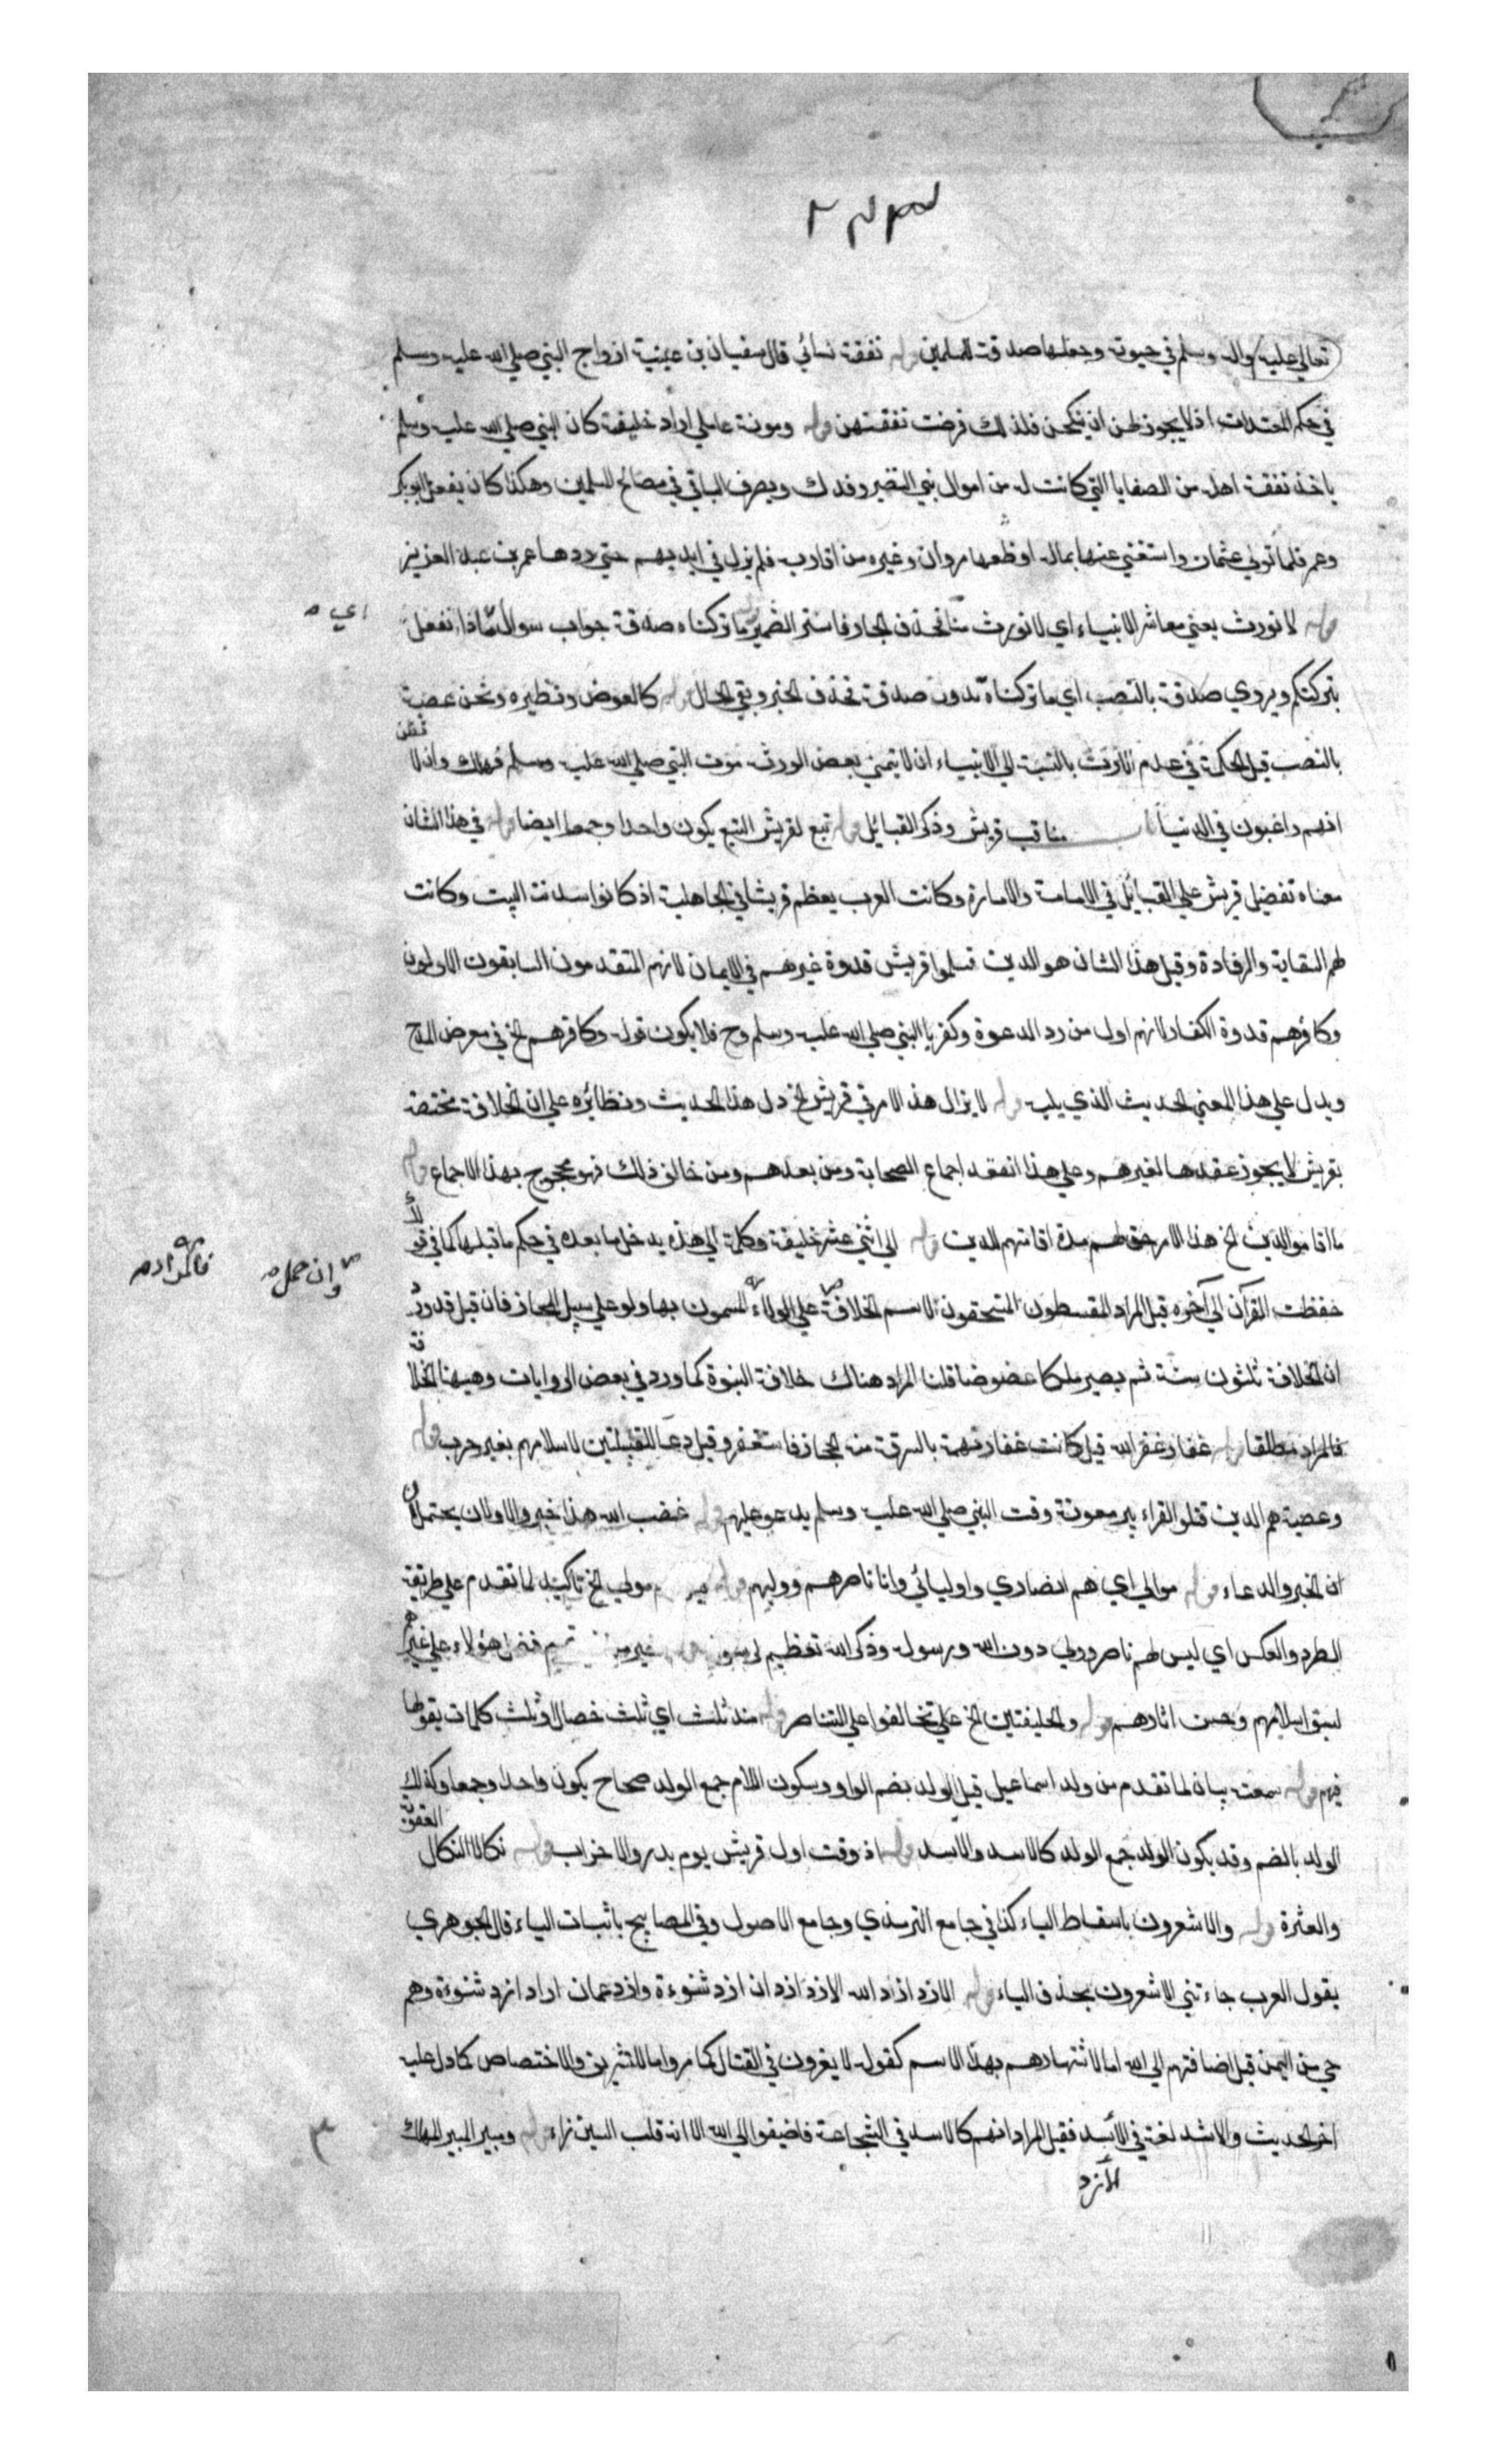 تعالي عليه واله وسلم في حيوته وجعلها صدقة للمسلمين قوله نفقة نسائي قال سفيان بن عيينة ازواج النبي صلي الله عليه وسلم
في حكم المعتدات اذ لا يجوز لهن ان ينكحن فلذلك فرضت نفقتهن قوله ومونة عاملي اراد خليفة كان النبي صلي الله عليه وسلم
ياخذ نفقة اهله من الصفايا التي كانت له من اموال بني النضير وفدك ويصرف الباقي في مصالح المسلمين وهكذا كان يفعل ابو بكر
وعمر فلما تولي عثمان واستغني عنها بماله اقطعها مروان وغيره من اقاربه فلم يزل في ايديهم حتي ردها عمر بن عبد العزيز
قوله لا نورث يعني معاشر الانبياء اي لا نورث منا فحذف الجار فاستتر الضمير ما تركناه صدقة جواب سوال ماذا نفعل
اي
بتركتكم ويروي صدقة بالنصب اي ما تركناه مبذول صدقة فحذف الخبر وبقي الحال قوله كالعوض ونظيره ونحن عصبة
بالنصب قيل الحكمة في عدم الارث بالنسبة الي الانبياء ان لا يتمني بعض الورثة موت النبي صلي الله عليه وسلم فيهلك وان لا
يظن
انهم راغبون في الدنيا باب مناقب قريش وذكر القبائل قوله تبع لقريش التبع يكون واحدا وجمعا ايضا قوله في هذا الشان
معناه تفضيل قريش علي القبائل في الامامة والامارة وكانت العرب يعظم قريشا في الجاهلية اذ كانوا سدنة البيت وكانت
لهم السقاية والرفادة وقيل هذا الشان هو الدين فمسلموا قريش قدوة غيرهم في الايمان لانهم المتقدمون السابقون الاولون
وكافرهم قدوة الكفار لانهم اول من رد الدعوة وكفر بالنبي صلي الله عليه وسلم وح فلا يكون قوله وكافرهم الخ في معرض المدح
ويدل علي هذا المعني الحديث الذي يليه قوله لا يزال هذا الامر في قريش الخ دل هذا الحديث ونظائره علي ان الخلافة مختصة
بقريش لا يجوز عقدها لغيرهم وعلي هذا انعقد اجماع الصحابة ومن بعدهم ومن خالف ذلك فهو محجوج بهذا الاجماع قوله
ما اقاموا الدين الخ هذا الامر حق لهم مدة اقامتهم الدين قوله الي اثني عشر خليفة وكلمة الي هذه يدخل ما بعده في حكم ما قبلها كما في قو
لك
وان حمل
فالمراد
حفظت القرآن الي آخره قيل المراد المقسطون المستحقون لاسم الخلافة علي الولاء المسمون بها ولو علي سبيل المجاز فان قيل قد ورد
ان الخلافة ثلثون سنة ثم يصير ملكا عضوضا قلنا المراد هناك خلافة النبوة كما ورد في بعض الروايات وههنا الخلا
فة
فالمراد مطلقا قوله غفار غفر الله قيل كانت غفار تهمة بالسرقة من الحجاز فاستغفر وقيل دعا للقبيلتين لاسلامهم بغير حرب قوله
وعصية هم الذين قتلوا القراء ببير معونة وقت النبي صلي الله عليه وسلم يدعو عليهم قوله غضب الله هذا خبر والاولان يحتملان
ان الخبر والدعاء قوله موالي اي هم انصاري واوليائي وانا ناصرهم ووليهم قوله مولي الخ تاكيد لما تقدم علي طريقة
الطرد والعكس اي ليس لهم ناصر وولي دون الله ورسوله وذكر الله تعظيم لرسوله قوله خير من تميم فضل هؤلاء علي غيرهم
لسبق اسلامهم وحسن اثارهم قوله والحليفين الخ علي تحالفوا علي التناصر قوله منذ ثلث اي ثلث خصال او ثلث كلمات يقولها
فيهم قوله سمعت بيان لما تقدم من ولد اسماعيل قيل الولد بضم الواو وسكون اللام جمع الولد صحاح يكون واحدا وجمعا وكذلك
الولد بالضم وقد يكون الولد جمع الولد كالاسد والاسد قوله اذقت اول قريش يوم بدر والاحزاب قوله نكالا النكال
العقوبة
والعثرة قوله والاشعرون باسقاط الياء كذا في جامع الترمذي وجامع الاصول وفي المصابيح باثبات الياء قال الجوهري
يقول العرب جاءتني الاشعرون بحذف الياء قوله الازد ازد الله الازد ازدان ازد شنوءة وازد عمان اراد ازد شنوءة وهم
حي من اليمن قيل اضافتهم الي الله اما لاشتهارهم بهذا الاسم كقوله لا يغرون في القتال كما مر واما للتشريف والاختصاص كما دل عليه
اخر الحديث والاشد لغة في الاسد فقيل المراد انهم كالاسد في الشجاعة فاضيفوا الي الله الا انه قلب السين زاء قوله ومبير المبير المهلك
الازد